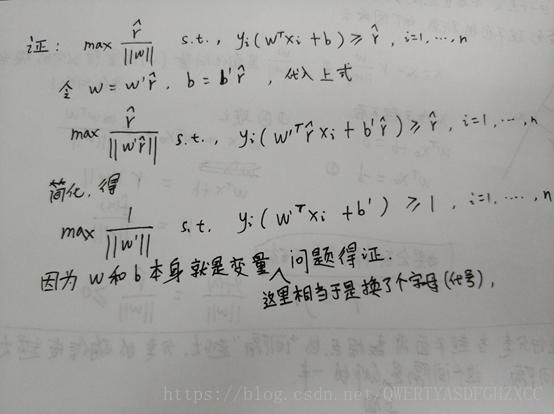 证： max r̂/||w|| s.t., yi(wᵀxi + b) ≥ r̂, i=1, ⋯, n
令 w = w'r̂, b = b'r̂, 代入上式
max r̂/||w'r̂|| s.t., yi(w'ᵀr̂xi + b'r̂) ≥ r̂, i=1, ⋯, n
简化, 得
max 1/||w'|| s.t. yi(w'ᵀxi + b') ≥ 1, i=1, ⋯, n
因为 w 和 b 本身就是变量 ∧ 问题得证.
这里相当于是换了个字母(代号),
https://blog.csdn.net/QWERTYASDFGHZXCC